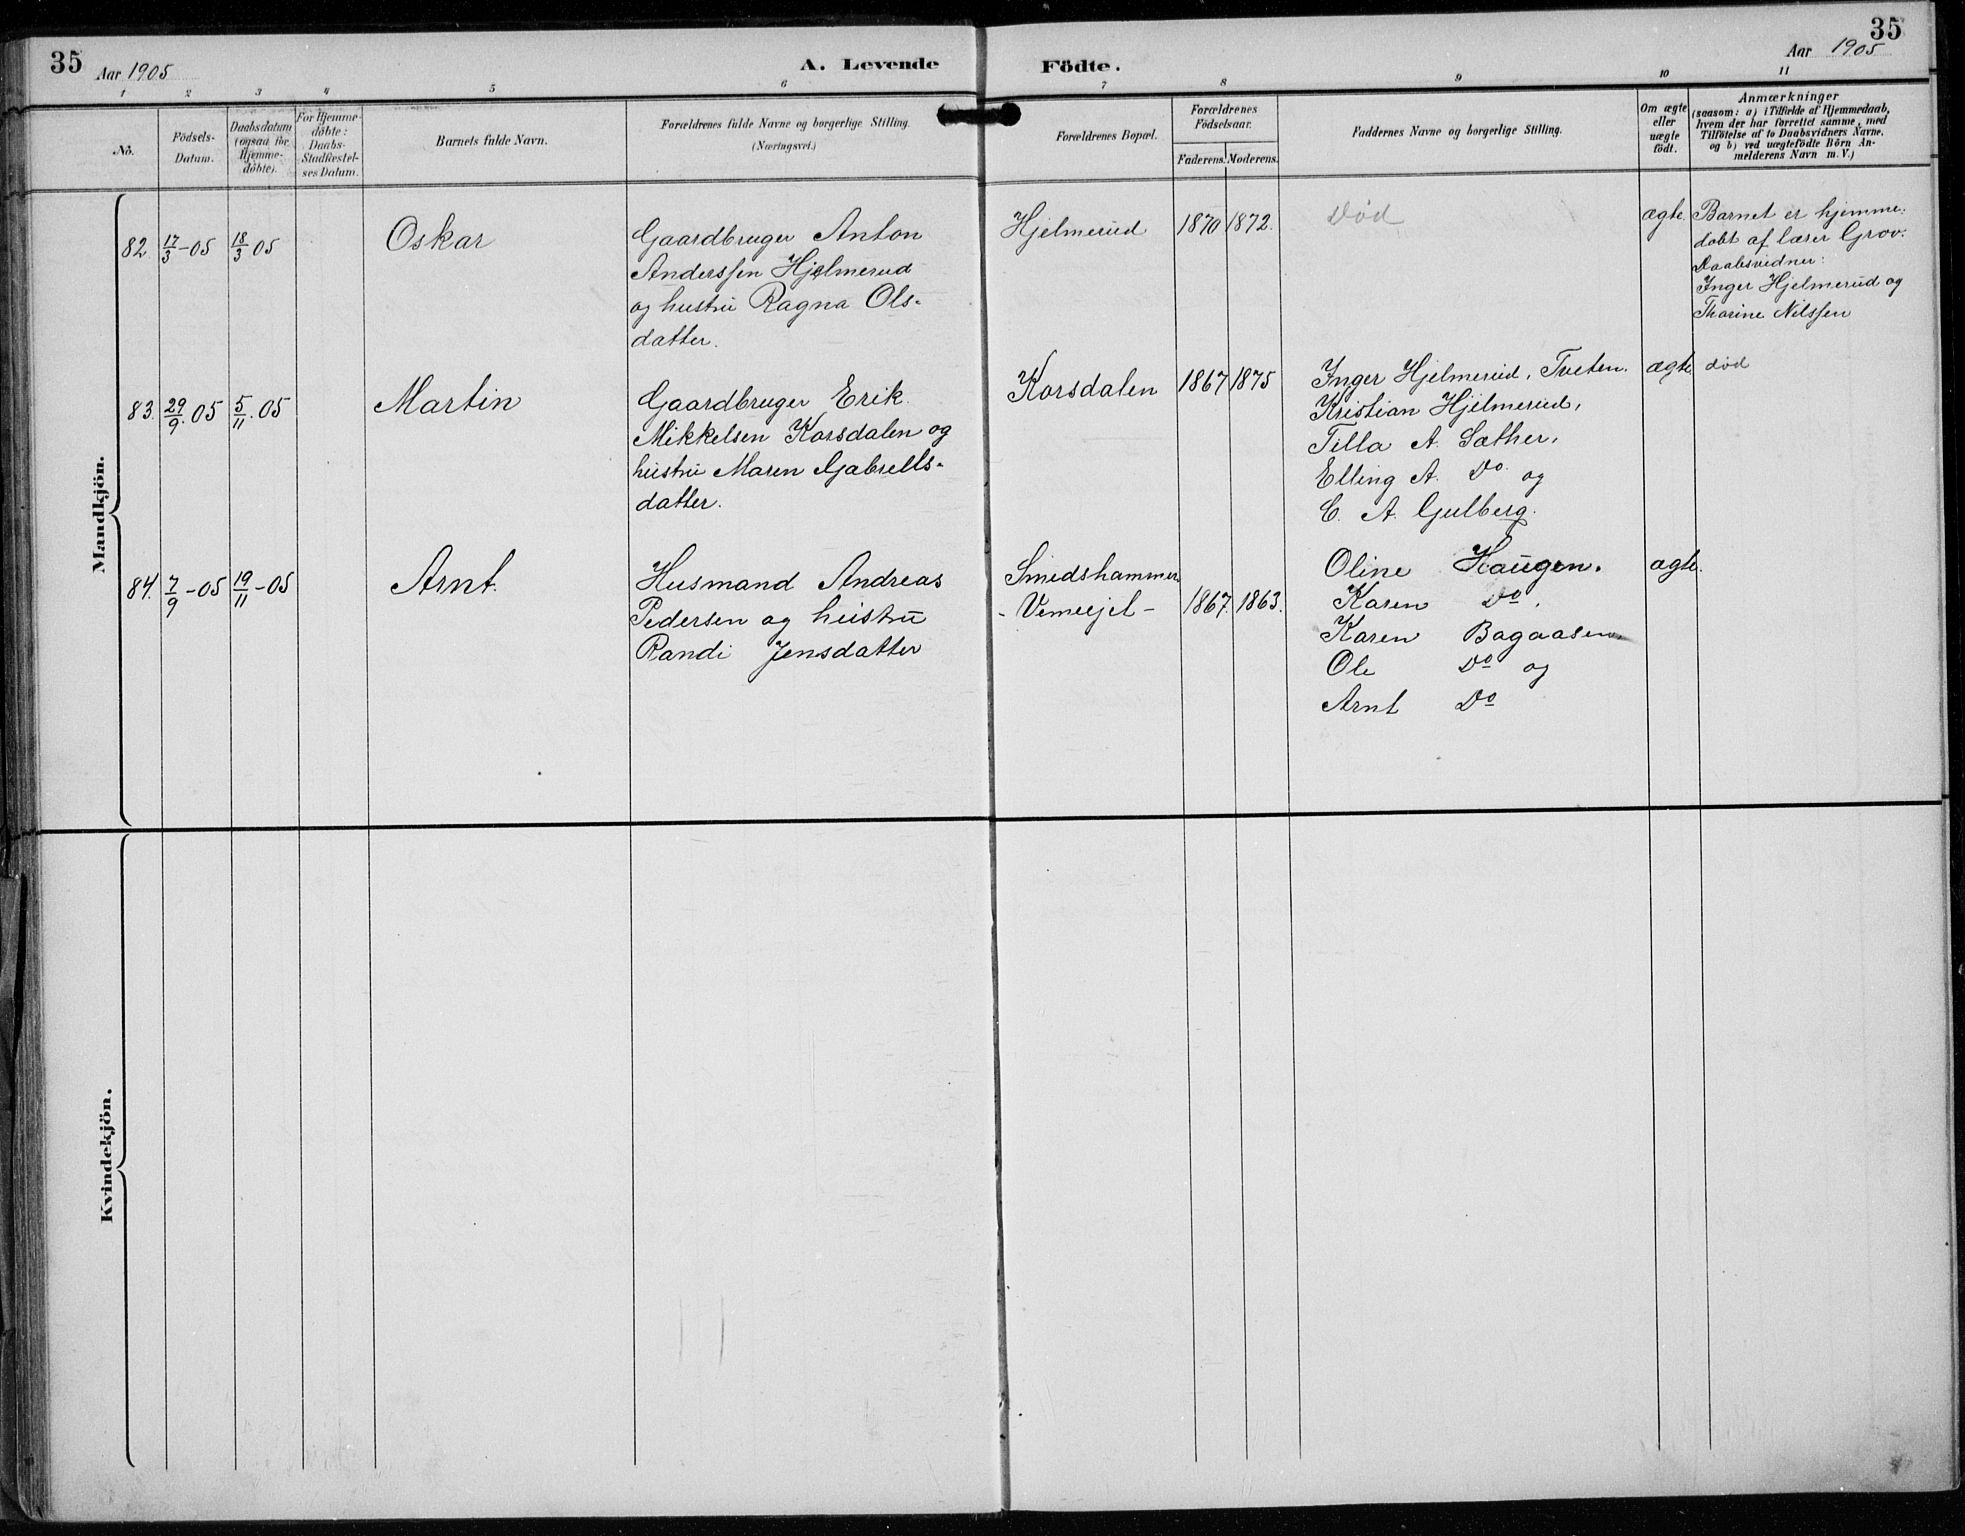 35
Aar 1905
A. Levende Födte.
35
Aar 1905
1 2 3 4 5 6 7 8 9 10 11
No.
Födsels-
Datum.
Daabsdatum
(ogsaa for
Hjemme-
döbte).
For Hjemme-
döbte:
Daabs-
Stadfæstel-
ses Datum.
Barnets fulde Navn.
Forældrenes fulde Navne og borgerlige Stilling.
(Næringsvei.)
Forældrenes Bopæl.
Forældrenes
Födselsaar.
Faderens. Moderens.
Faddernes Navne og borgerlige Stilling.
Om ægte
eller
uægte
födt.
Anmærkninger
(saasom: a) i Tilfælde af Hjemmedaab,
hvem der har forrettet samme, med
Tilföielse af to Daabsvidners Navne,
og b) ved uægtefödte Börn An-
melderens Navn m. V.)
Mandkjön.
82. 17/3-05 18/3 05 Oskar
Gaardbruger Anton
Anderssen Hjelmerud
og hustru Ragna Ols-
datter.
Hjelmerud 1870 1872. Död ægte
Barnet er hjemme-
döbt af lærer Grov.
Daabsvidner:
Inger Hjelmerud og
Thorine Nilssen
83. 29/9.05 5/11.05 Martin
Gaardbruger Erik
Mikkelsen Korsdalen og
hustru Maren Gabrells-
datter.
Korsdalen 1867 1875
Inger Hjelmerud, Tveten.
Kristian Hjelmerud,
Tilla A. Sæther,
Elling A. Do og
C. A. Gulberg.
ægte død
84. 7/9-05 19/11-05 Arnt.
Husmand Andreas
Pedersen og hustru
Randi Jensdatter
Smedshammer
- Vemeejel - 1867. 1863.
Oline Haugen.
Karen Do.
Karen Bagaasen
Ole Do og
Arnt Do
ægte.
Kvindekjön.